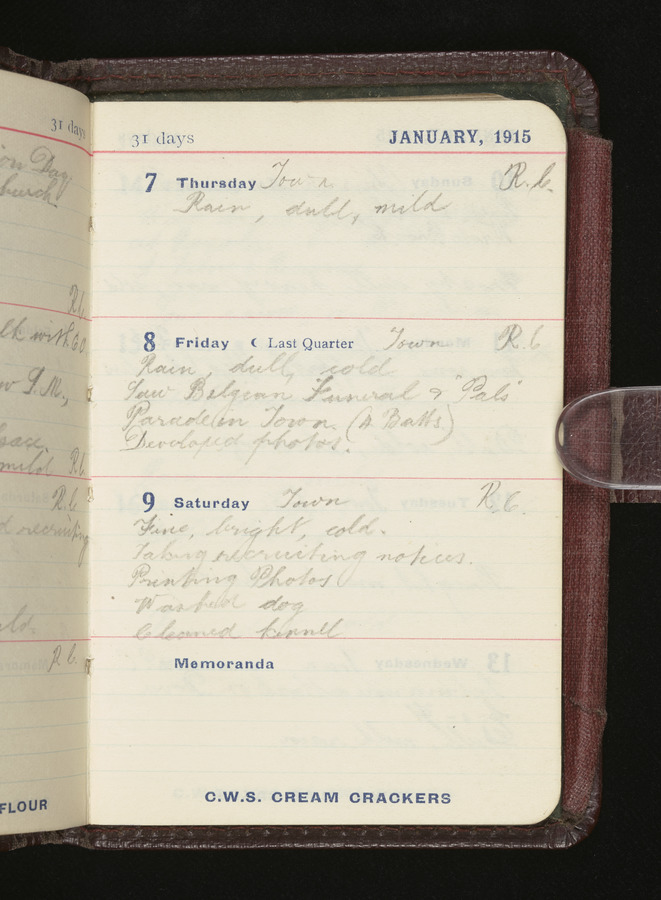 31 days
Day
Church
R.C.
lk with
mild R.C.
R.C.
recruiting
R.C.
FLOUR
31 days JANUARY, 1915
7 Thursday Town R.C.
Rain, dull, mild
8 Friday ☾ Last Quarter Town R.C.
Rain, dull, cold
Saw Belgian Funeral & "Pals"
Parade in Town. (4 Batts)
Developed photos.
9 Saturday Town R.C.
Fine, bright, cold.
Taking recruiting notices.
Printing Photos
Washed dog
Cleaned kennel
Memoranda
C.W.S. CREAM CRACKERS